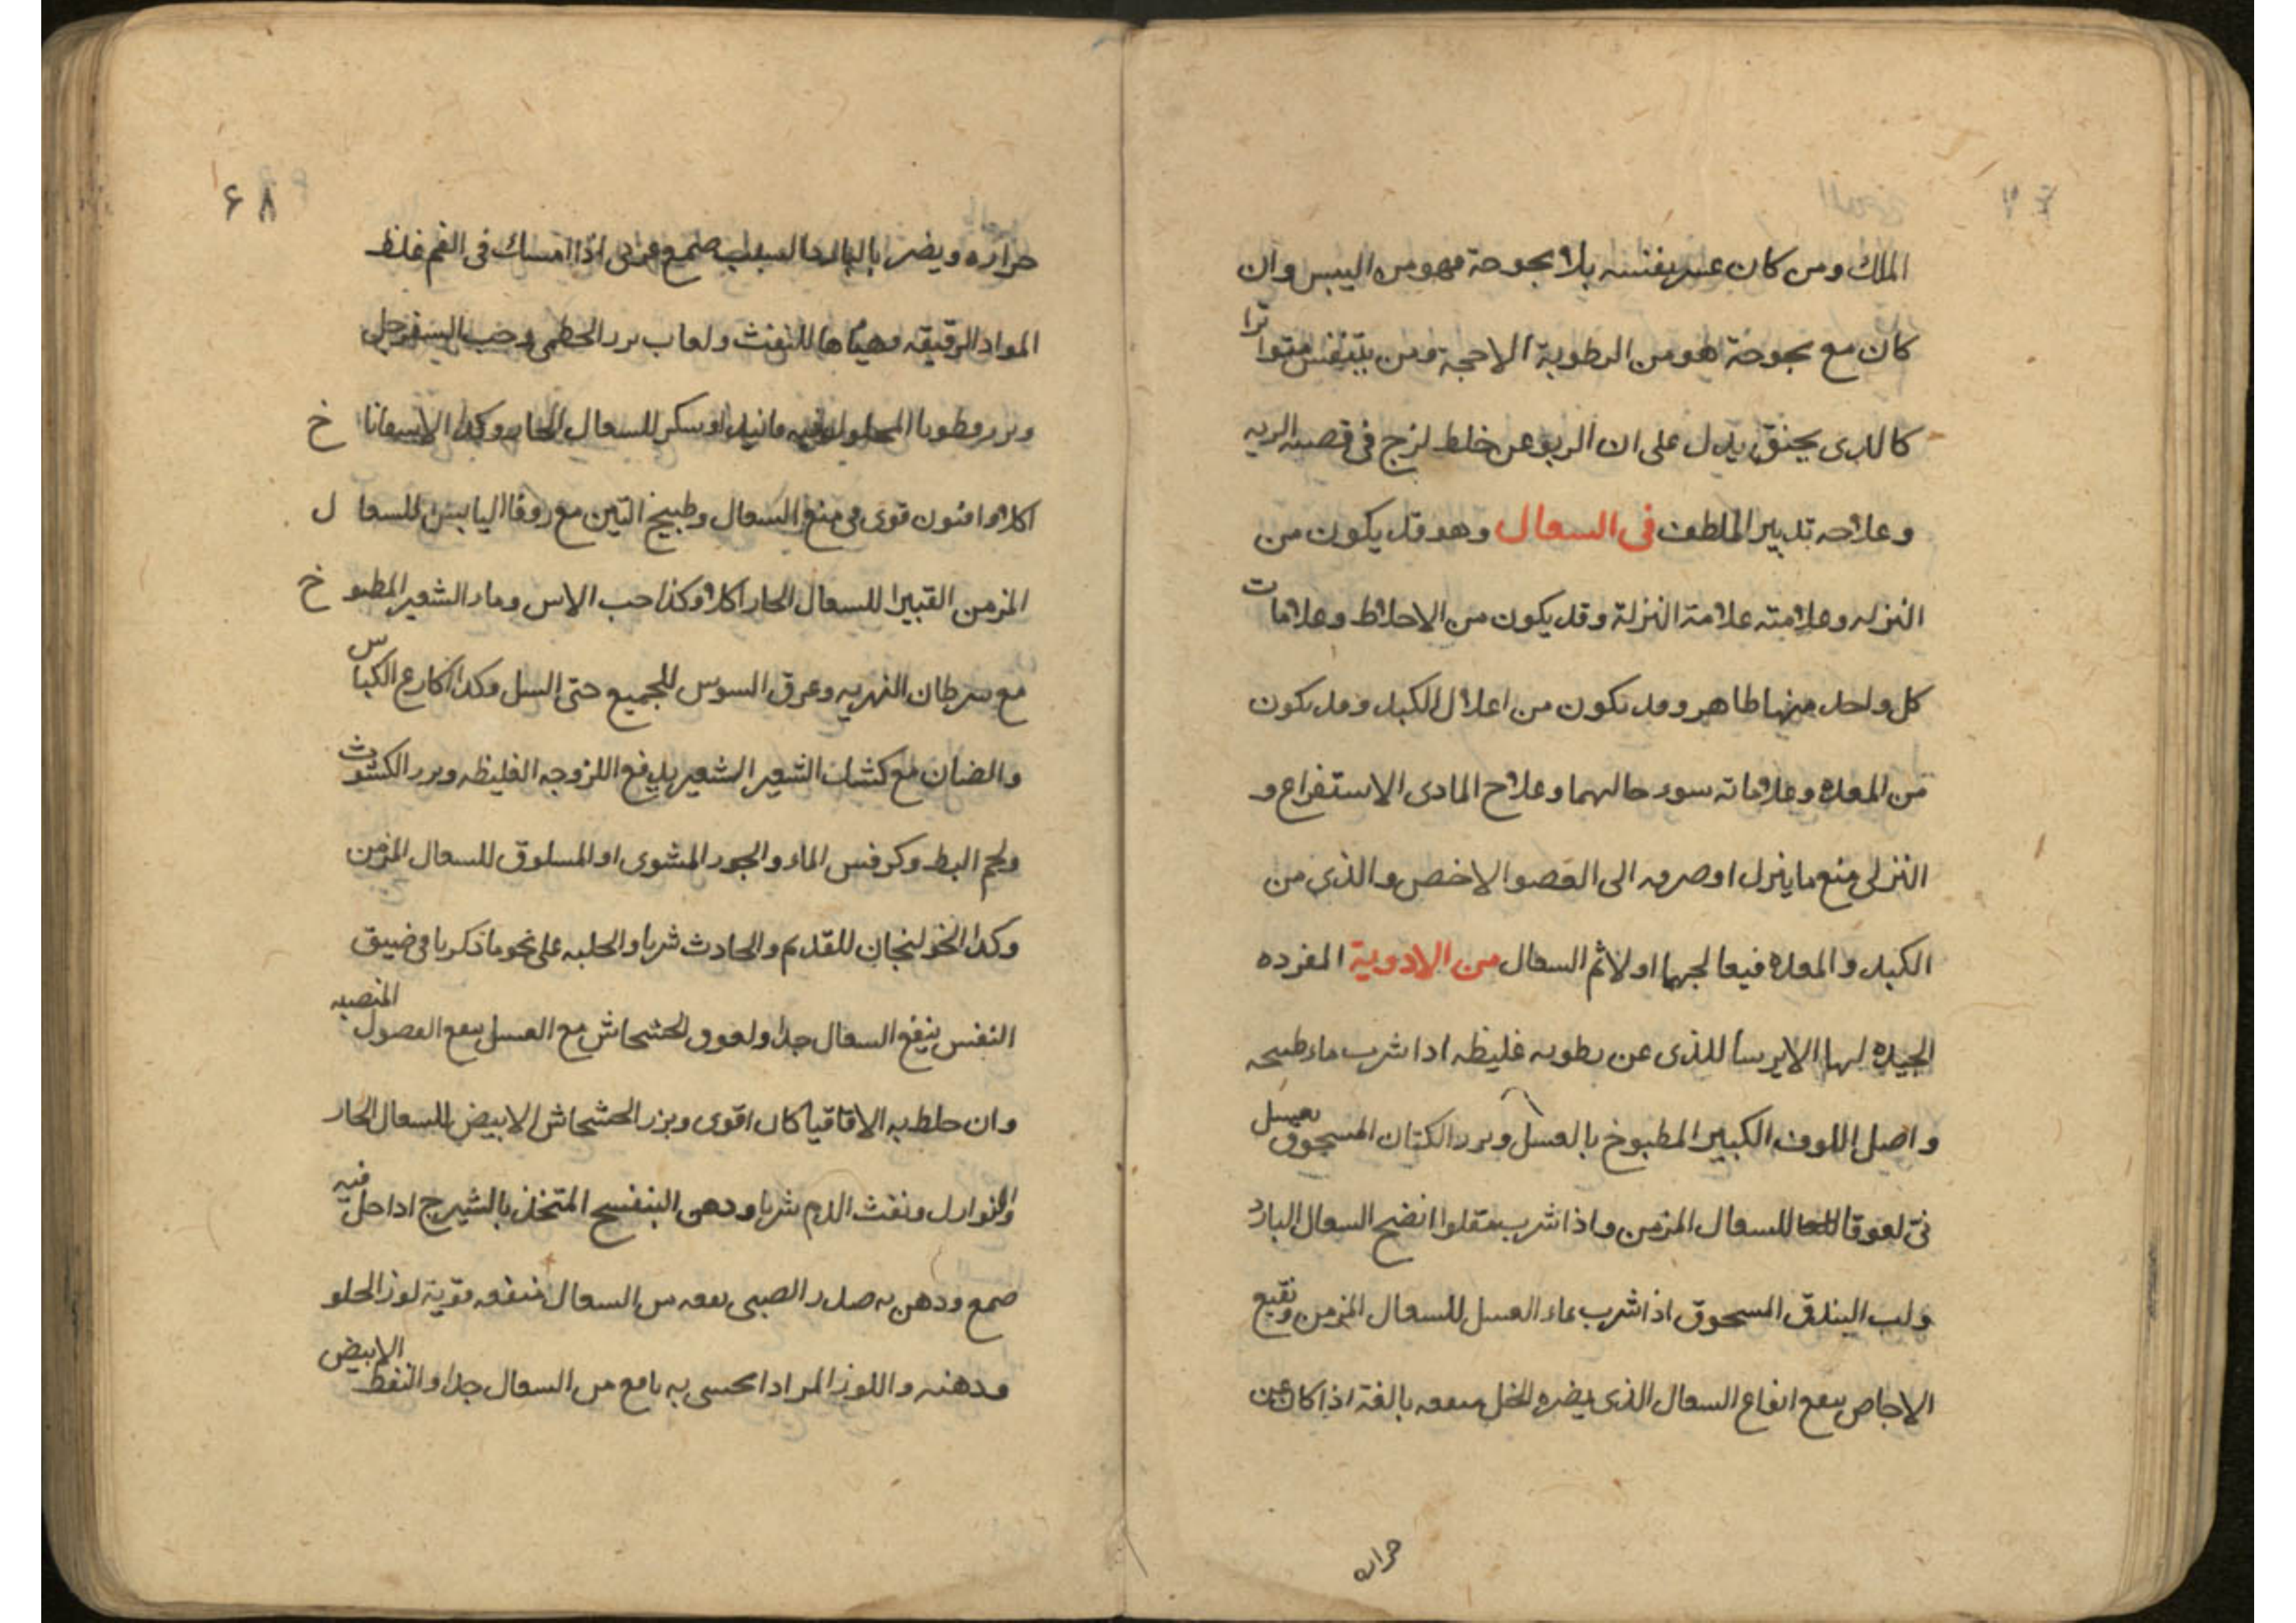 الملك ومن كان عسر بفنسه بلا بحوحة فهو من اليبس وان
كان مع بحوحة هو من الرطوبة الاحجة ومن يتنفس متواترا
كالدى يحنق يدل على ان الربو عن خلط لزج فى قصبه الريه
وعلاجه تدبير الملطف فى السعال وهو قد يكون من
النزله وعلامته علامة النزلة وقد يكون من الاخلاط وعلامات
كل واحد منها طاهر وقد تكون من اعلال الكبد وقد يكون
من المعده وعلاماته سوء حالهما وعلاج المادى الاستفراغ و
النزلى منع ما ينزل او صرفه الى العضو الاخص والذى من
الكبد والمعده فيعالجهما اولا ثم السعال من الادوية المفرده
الجيده لها الايرسا للذى عن رطوبه غليظه اذا شرب ماء طبيخه
واصل اللوف الكبير المطبوخ بالعسل وبزر الكتان المسحوق بعسل
نى لعوقا للسعال المزمن واذا شرب مقلوا انضج السعال البارد
ولب البندق المسحوق اذا شرب بماء العسل للسعال المزمن ونقيع
الاجاص ينفع انفاع السعال الذى يضره الخل منفعه بالغة اذا كان عن
حراره
۶۸
حراره ويضر بالبارد صمغ اذا امسك فى الفم غلظ
المواد الرقيقه وهياها للنفث ولعاب بزر الخطمى وحب السفرجل
وبزر قطونا او سكر للسعال الحار وكذا الاسفاناخ
اكلا وافنون قوى فى منع السعال وطبيخ التين مع زوفا اليابس للسعال
المزمن القبيرا للسعال الحار اكلا وكذا حب الاس وماء الشعير المطبوخ
مع سرطان النهريه وعرق السوس للجميع حتى السل وكذا اكارع الكباس
والضان مع كشك الشعير الشعير يدفع اللزوجه الغليظه وبزر الكشوث
ولحم البط وكرفس الماء والجوز المشوى او المسلوق للسعال المزمن
وكذا الخولنجان للقديم والحادث شربا والحلبه على نحو ما ذكر با فى ضيق
النفس ينفع السعال جدا ولعوق الخشخاش مع العسل يمنع الفضول المنصبه
وان خلط به الاقاقيا كان اقوى وبزر الخشخاش الابيض للسعال الحار
والنوازل ونفث الدم شربا ودهن البنفسج المتخذ بالشيرج اذا حل فيه
صمغ ودهن به صدر الصبى نفعه من السعال منفعه قوية لوز الحلو
ودهنه واللوز المر اذا تحسى به نافع من السعال جدا والنفط الابيض